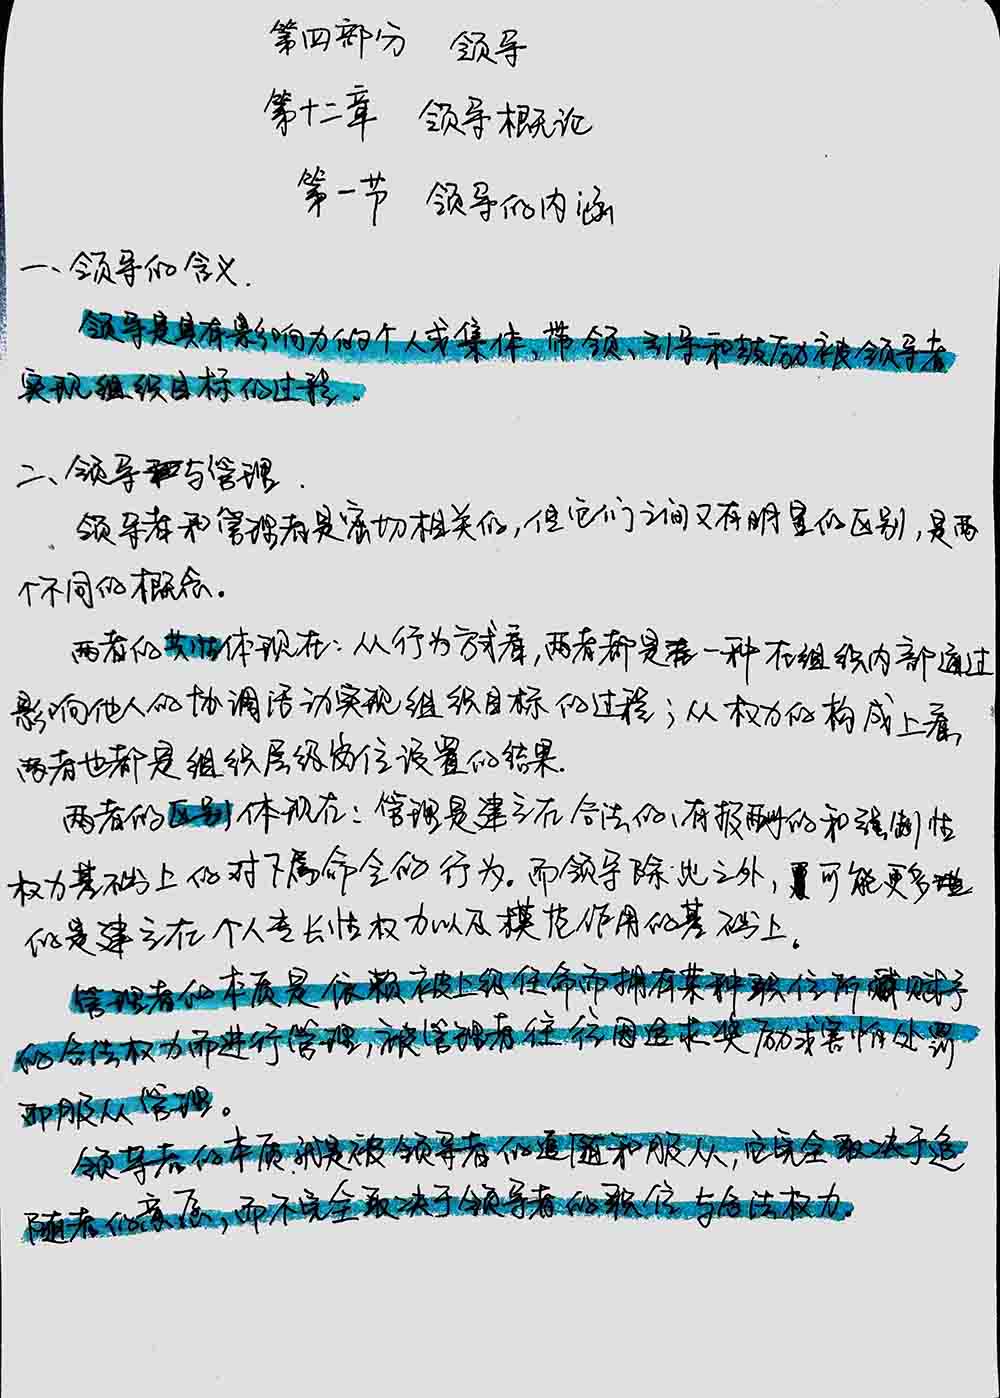 第四部分 领导
第十二章 领导概论
第一节 领导的内涵
一、领导的含义.
领导是具有影响力的个人或集体、带领、引导和鼓励被领导者
实现组织目标的过程.
二、领导与管理.
领导者和管理者是密切相关的,但它们之间又有明显的区别,是两
个不同的概念。
两者的共性体现在:从行为方式看,两者都是一种在组织内部通过
影响他人的协调活动实现组织目标的过程;从权力的构成上看,
两者也都是组织层级岗位设置的结果.
两者的区别体现在:管理是建立在合法的、有报酬的和强制性
权力基础上的对下属命令的行为。而领导除此之外,可能更多地
的是建立在个人专长性权力以及模范作用的基础上。
管理者的本质是依赖被上级任命而拥有某种职位所赋予
的合法权力而进行管理,被管理者往往因追求奖励或害怕处罚
而服从管理。
领导者的本质就是被领导者的追随和服从,它完全取决于追
随者的意愿,而不完全取决于领导者的职位与合法权力.